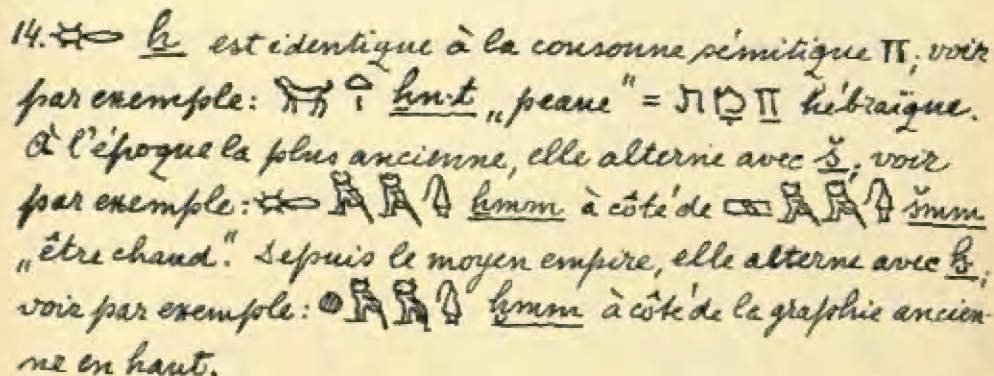 14. 𓄡 ẖ est identique à la consonne sémitique ח; voir
par exemple: 𓄚𓏏 ẖn·t „peaue" = חמת hébraïque.
à l'époque la plus ancienne, elle alterne avec š; voir
par exemple: 𓄡𓅓𓅓𓊮 ẖmm à côté de 𓈙𓅓𓅓𓊮 šmm
„être chaud". Depuis le moyen empire, elle alterne avec ḫ;
voir par exemple: 𓐍𓅓𓅓𓊮 ḫmm à côté de la graphie ancien-
ne en haut.